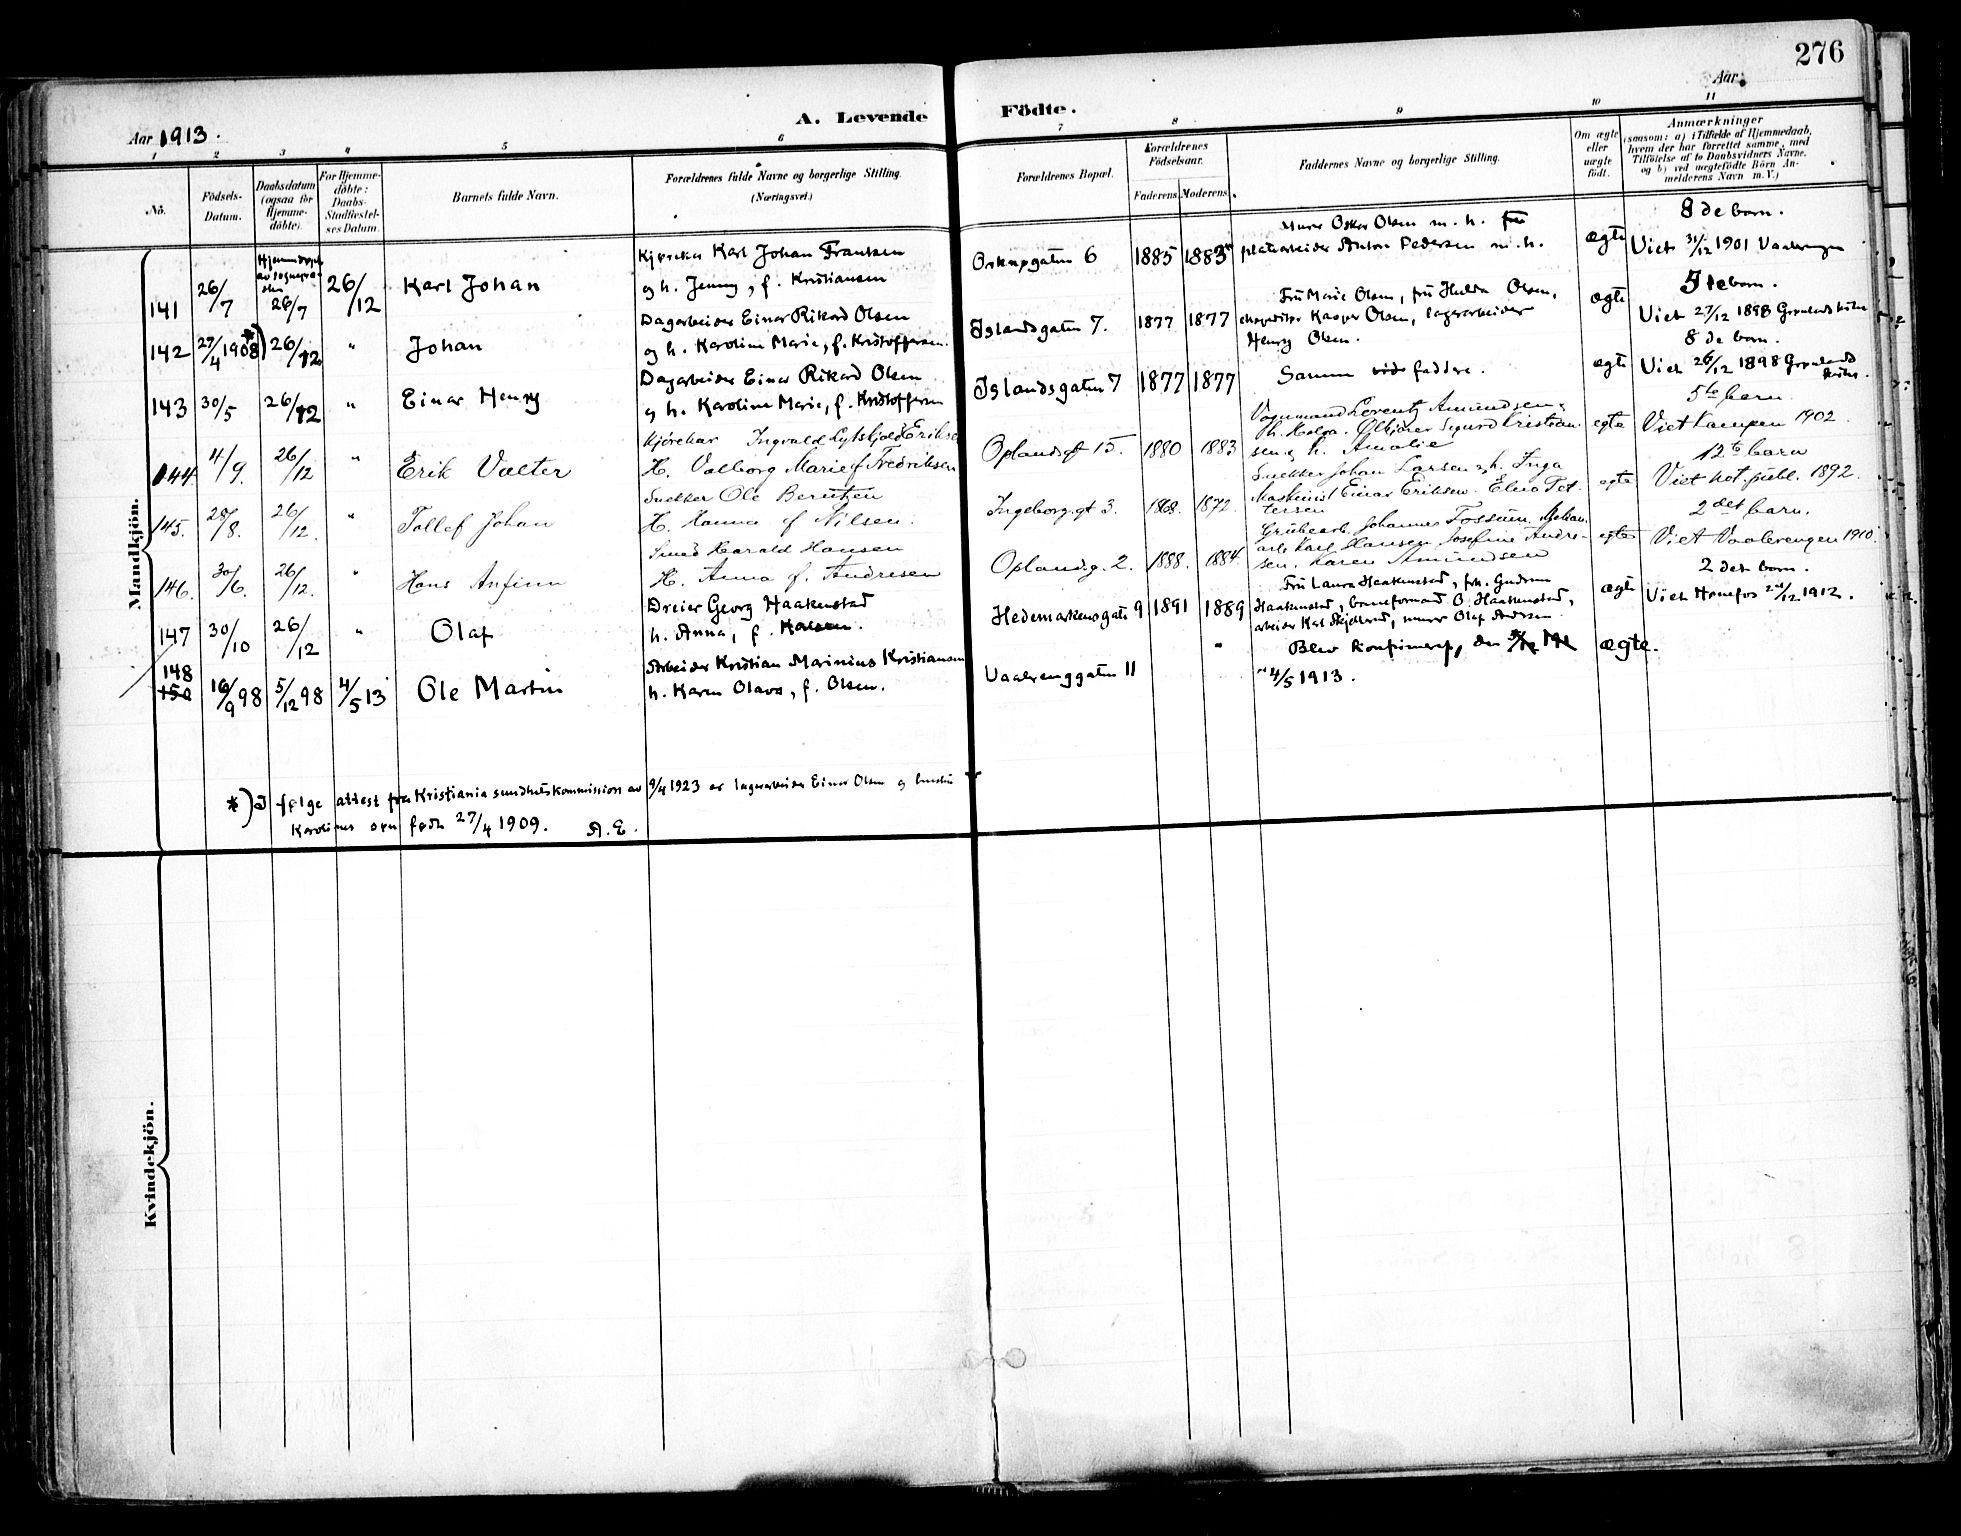 276
Aar 1913.
A. Levende Födte.
Aar
1 2 3 4 5 6 7 8 9 10 11
No.
Födsels-Datum.
Daabsdatum (ogsaa for Hjemmedöbte).
For Hjemmedöbte: Daabs-Stadfæstelses Datum.
Barnets fulde Navn.
Forældrenes fulde Navne og borgerlige Stilling. (Næringsvei.)
Forældrenes Bopæl.
Forældrenes Födselsaar.
Faderens. Moderens.
Faddernes Navne og borgerlige Stilling.
Om ægte eller uægte født.
Anmærkninger
(saasom: a) i Tilfælde af Hjemmedaab, hvem der har forrettet samme, med Tilföielse af to Daabsvidners Navne, og b) ved uægtefödte Börn Anmelderens Navn m. V.)
Mandkjön.
141 26/7 26/7 26/12 Karl Johan
Kjørekar Karl Johan Frantsen
og h. Jenny, f. Kristiansen
6 1885 1883
Murer Oskar Olsen m. h.
platearbeider Anton Pedersen m. h.
ægte
8de barn.
Viet 31/12 1901 Vaalerengen
142 27/4 1908 *) 26/12 " Johan
Dagarbeider Einar Rikard Olsen
og h. Karoline Marie, f. Kristoffersen.
Islandsgaten 7. 1877 1877
Fru Marie Olsen, fru Hulda Olsen,
ekspeditør Kasper Olsen, lagerarbeider
Henry Olsen.
ægte
5te barn.
Viet 27/12 1898 Grønlands kirke
143 30/5 26/12 " Einar Henry
Dagarbeider Einar Rikard Olsen
og h. Karoline Marie, f. Kristoffersen
Islandsgaten 7 1877 1877
Samme fadere.
ægte
8de barn.
Viet 26/12 1898 Grønlands kirke.
144 4/9. 26/12 " Erik Valter
Kjørekar Ingvald Eriksen
H. Valborg Marie f Fredriksen
Oplandsgt 15. 1880 1883
Vognmand Lorentz Amundsen,
Sigurd Kristiansen & h. Amalie
egte
5te barn
Viet Kampen 1902.
145. 28/8. 26/12. " Tollef Johan
Snekker Ole Berntzen
H. Hanna f Nilsen.
Ingeborg.gt 3. 1868. 1872.
Snekker Johan Larsen & h. Inga
Maskinist Einar Eriksen.
egte
12te barn
Viet not. publ. 1892.
146. 30/6. 26/12. Hans Anfinn
Smed Harald Hansen
H. Anna f. Andresen
Oplandg. 2. 1888. 1884.
Johannes Fossum.
Karl Hansen Josefine Andresen. Karen Amundsen
egte
2det barn.
Viet Vaalerengen 1910.
147 30/10 26/12 " Olaf
Dreier Georg Haakenstad
h. Anna, f.
Hedemarkensgate 9 1891 1889
Fru Laura Haakenstad, frk. Gudrun
Haakenstad, O. Haakenstad,
arbeider Karl, murer Olaf Andersen
ægte
2det barn.
Viet Hønefos 1912.
148
150
16/9 98 5/12 98 4/5 13 Ole Martin
Arbeider Kristian Marinius Kristiansen
h. Karen Olava, f. Olsen.
Vaalerenggaten 11 "
Blev konfirmeret, den
4/5 1913.
ægte.
*) I følge attest fra Kristiania sundhetskommission av 9/4 1923 er lagerarbeider Einar Olsen og hustru
Karolines søn født 27/4 1909. A. E.
Kvindekjön.